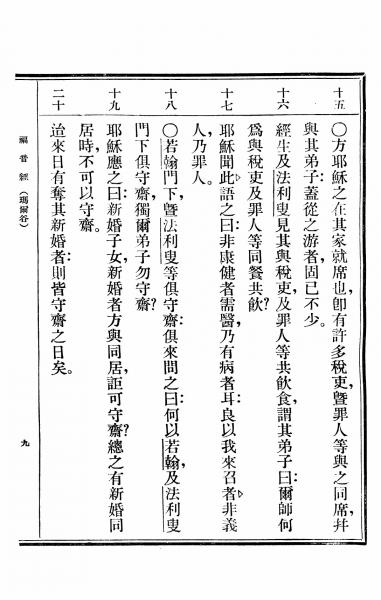 十五
〇方耶穌之在其家就席也卽有許多稅吏曁罪人等與之同席幷
與其弟子蓋從之游者固已不少。
十六
經生及法利叟見其與稅吏及罪人等共飲食，謂其弟子曰：爾師何
爲與稅吏及罪人等同餐共飲？
十七
耶穌聞此語之曰：非康健者需醫，乃有病者耳。良以我來召者非義
人，乃罪人。
十八
〇若翰門下，曁法利叟等俱守齋：俱來問之曰：何以若翰，及法利叟
門下俱守齋，獨爾弟子勿守齋？
十九
耶穌應之曰：新婚子女，新婚者方與同居，詎可守齋？總之有新婚同
居時，不可以守齋。
二十
迨來日有奪其新婚者：則皆守齋之日矣。
福音經（瑪爾谷）
九